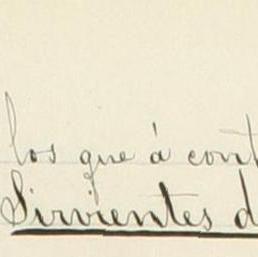 los que á cont
Sirvientes d